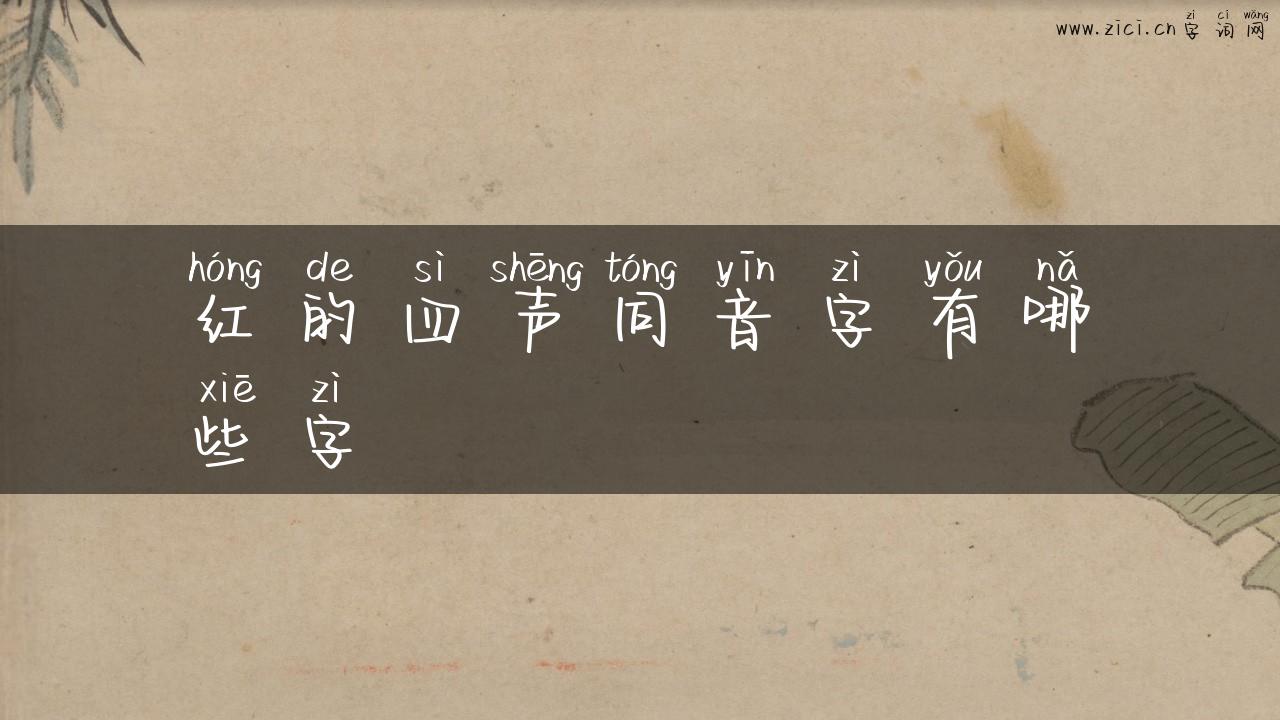 zì cí wǎng
www.zici.cn 字 词 网
hóng de sì shēng tóng yīn zì yǒu nǎ
红 的 四 声 同 音 字 有 哪
xiē zì
些 字